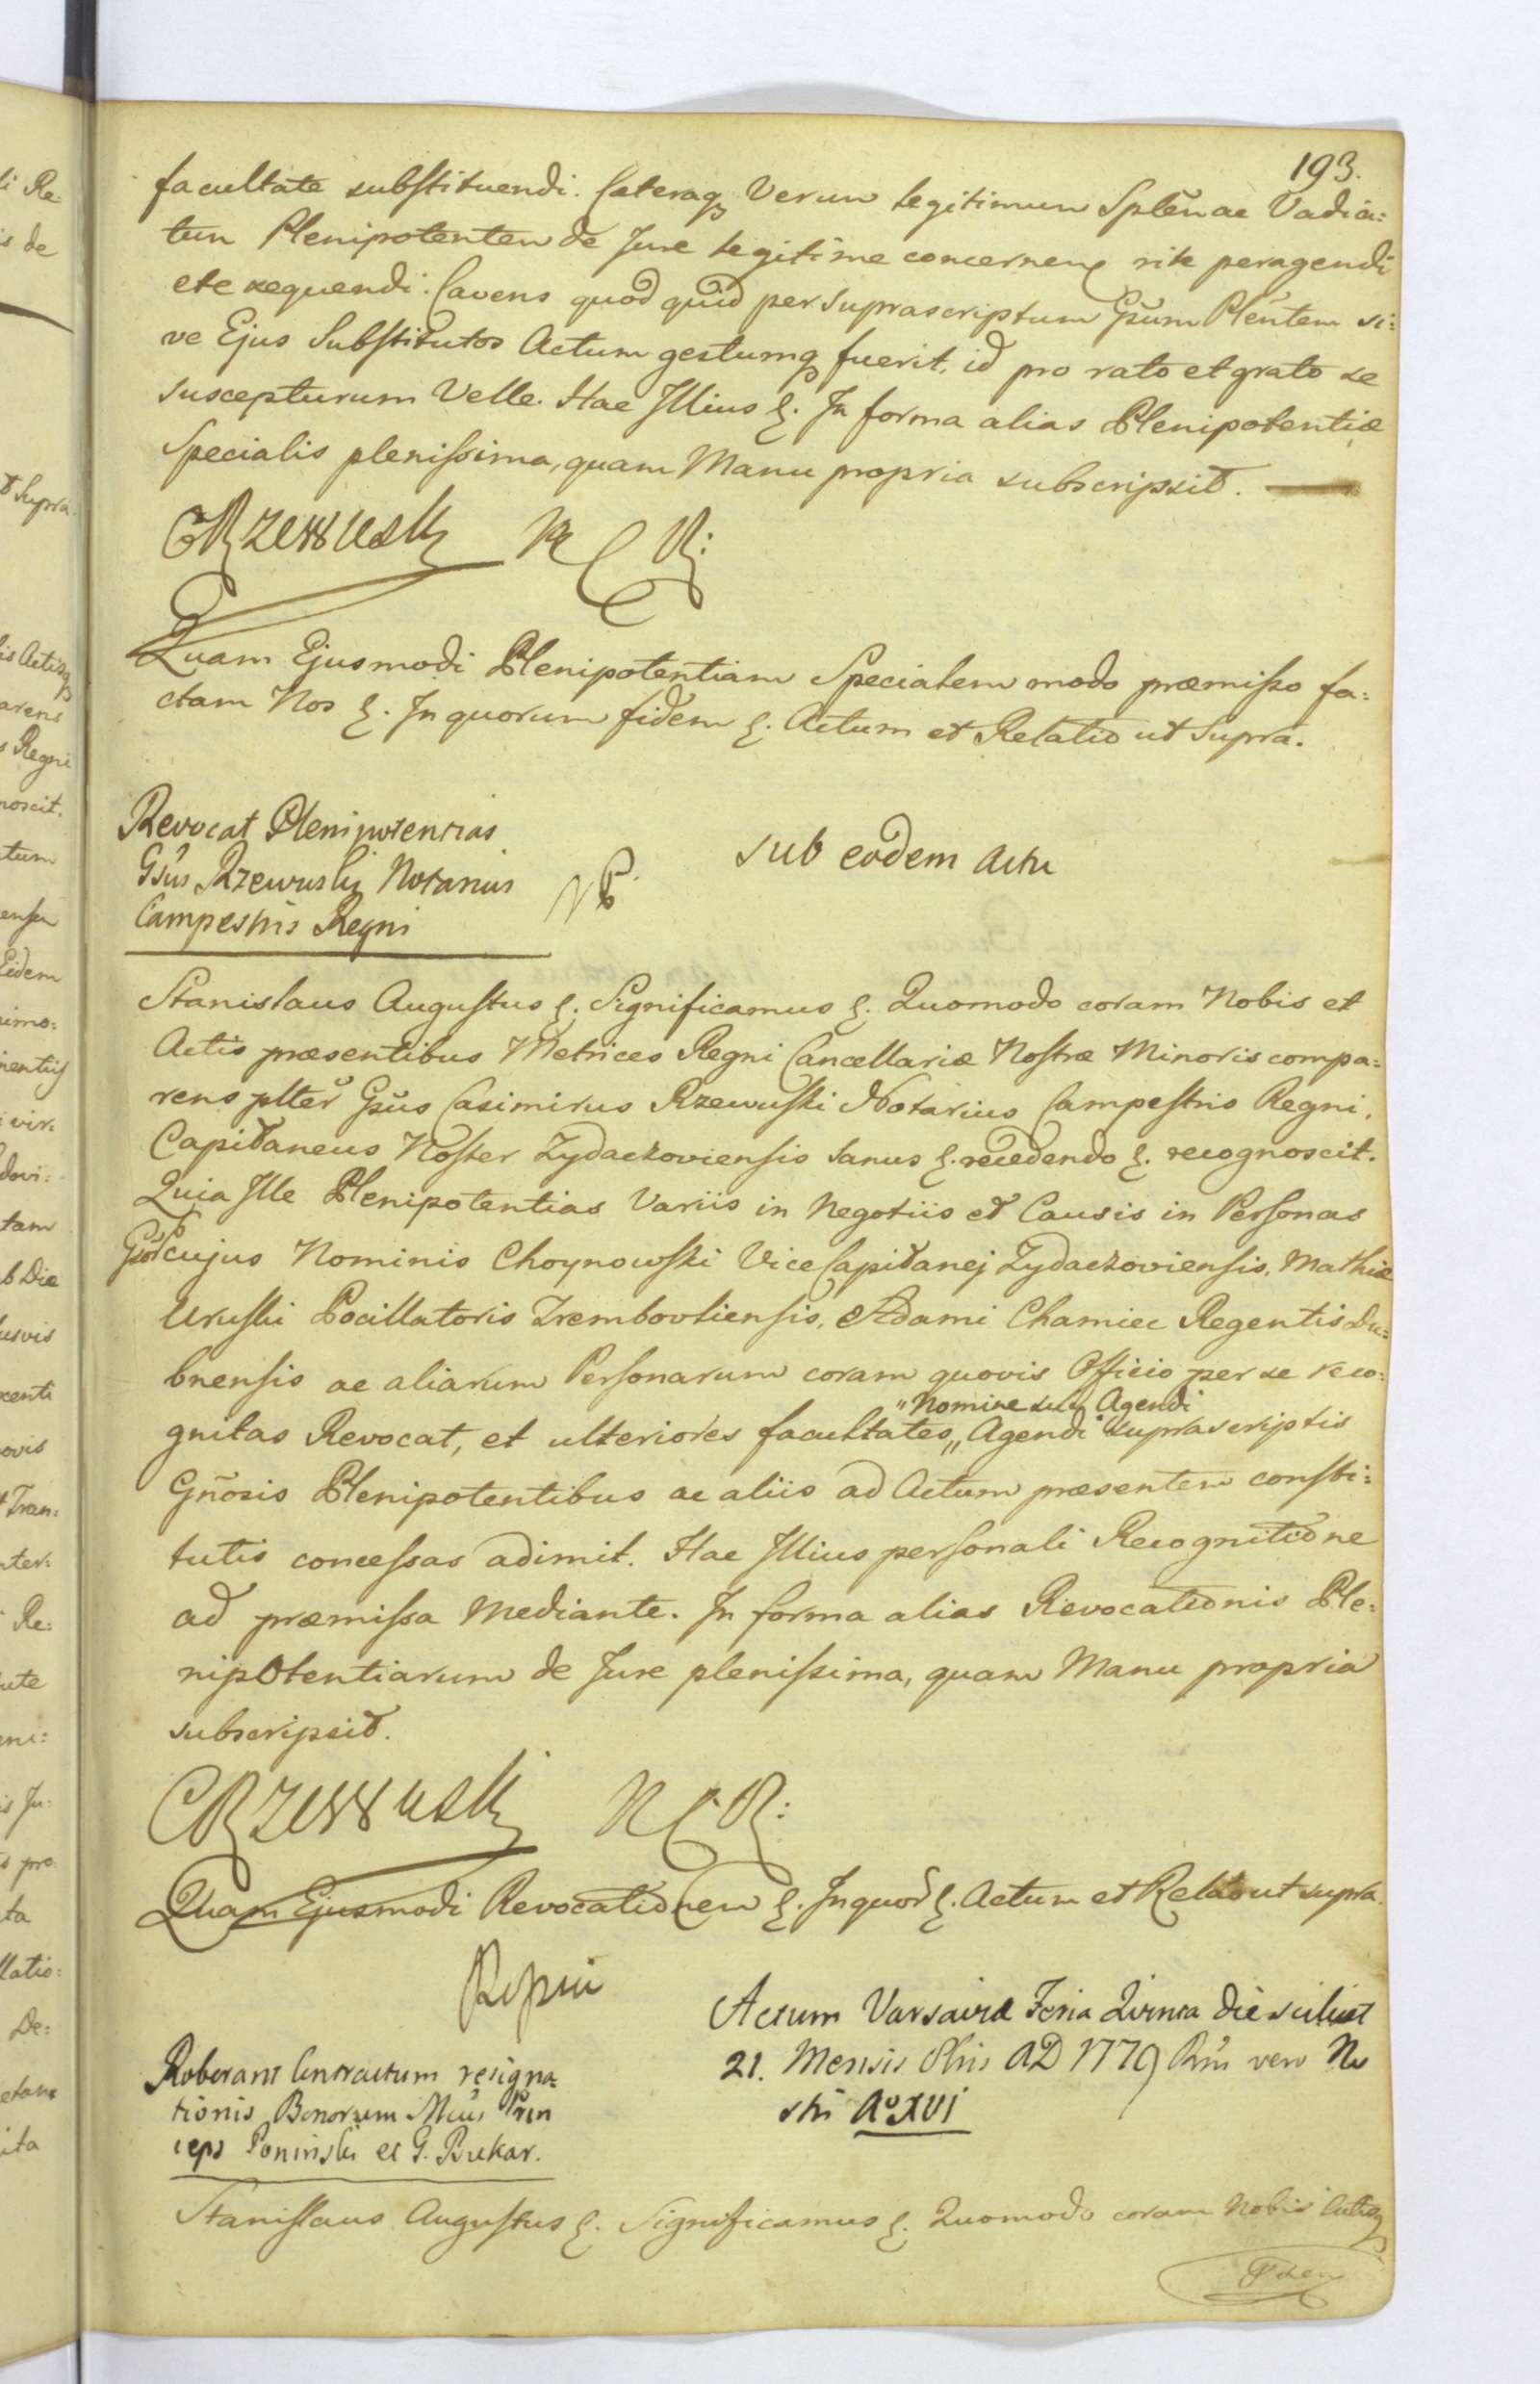 193.
facultate substituendi. Cæteraq3 Verum legitimum Splenae Vadia:
tum Plenipotentem de Jure legitime concernen rite peragendi
et exequendi. Cavens quod quid per Suprascriptum Gsum Plentem si:
ve Ejus Substitutos Actum gestumq3 fuerit, id pro rato et grato se
suscepturum Velle. Hac Illius &. In forma alias Plenipotentiæ
Specialis plenissima, quam Manu propria subscripsit.
CRzewuski N C R:
Quam Ejusmodi Plenipotentiam Specialem modo præmisso fa:
ctam Nos &. In quorum fidem &. Actum et Relatio ut Supra.
Revocat Plenipotentias
Gsus Rzewuski Notarius
Campestris Regni
sub eodem Actu
Stanislaus Augustus &. Significamus &. Quomodo coram Nobis et
Actis præsentibus Metrices Regni Cancellariæ Nostræ Minoris compa:
rens plter Gsus Casimirus Rzewuski Notarius Campestris Regni,
Capitaneus Noster Zydaczoviensis Sanus &. recedendo &. recognoscit.
Quia Ille Plenipotentias Variis in Negotiis et Causis in Personas
Gsor cujus Nominis Choynowski Vice Capitanej Zydaczoviensis, Mathiæ
Uruski Pocillatoris Trembovliensis, Adami Chamiec Regentis Du:
bnensis ac aliarum Personarum coram quovis Officio per se reco:
"Nomine sui Agendi
gnitas Revocat, et ulteriores facultates „Agendi" suprascriptis
Gnosis Plenipotentibus ac aliis ad Actum præsentem consti:
tutis concessas adimit. Hac Illius personali Recognitione
ad præmissa Mediante. In forma alias Revocationis Ple:
nipotentiarum de Jure plenissima, quam Manu propria
subscripsit.
CRzewuski N C R:
Quam Ejusmodi Revocationem &. In quor &. Actum et Relatio ut supra.
Actum Varsaviæ Feria Quinta die scilicet
21. Mensis 8bris AD 1779 Rni vero No
stri Ao XVI
Roborant Contractum resigna:
tionis Bonorum Mus Prin
ceps Poninski et G. Bukar.
Stanislaus Augustus &. Significamus &. Quomodo coram Nobis Actisq3